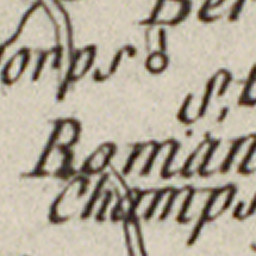 Ber
orps
S.t
Romain
Champs